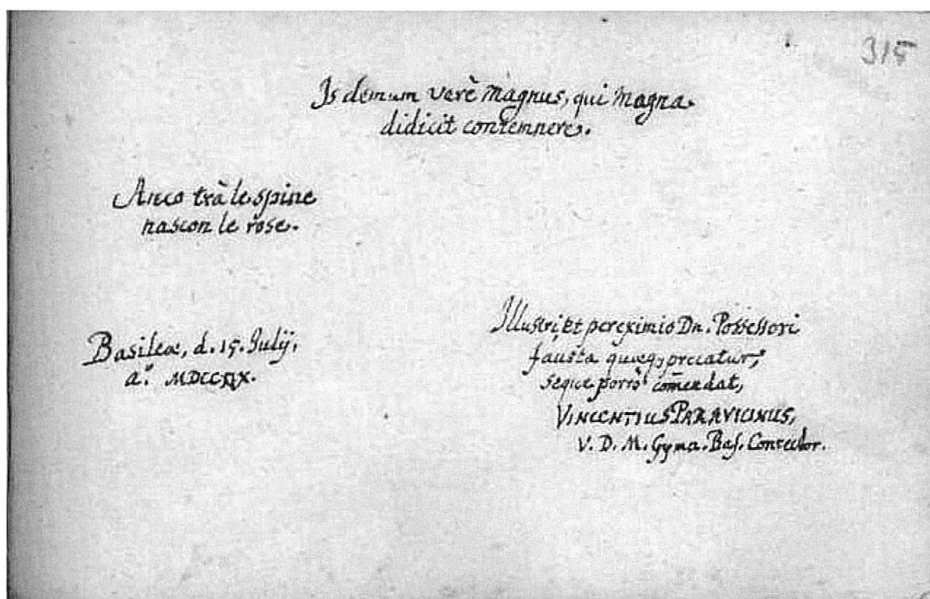 315
Is demum verè magnus, qui magna
didicit contemnere.
Anco trà le spine
nascon le rose.
Basileæ, d. 15. Julij,
aº. MDCCXX.
Illustri et pereximio Dn. Possessori
fausta quæq; precatur,
seque porrò comendat,
VINCENTIUS PARAVICINUS,
V. D. M. Gymn. Bas. Conrector.